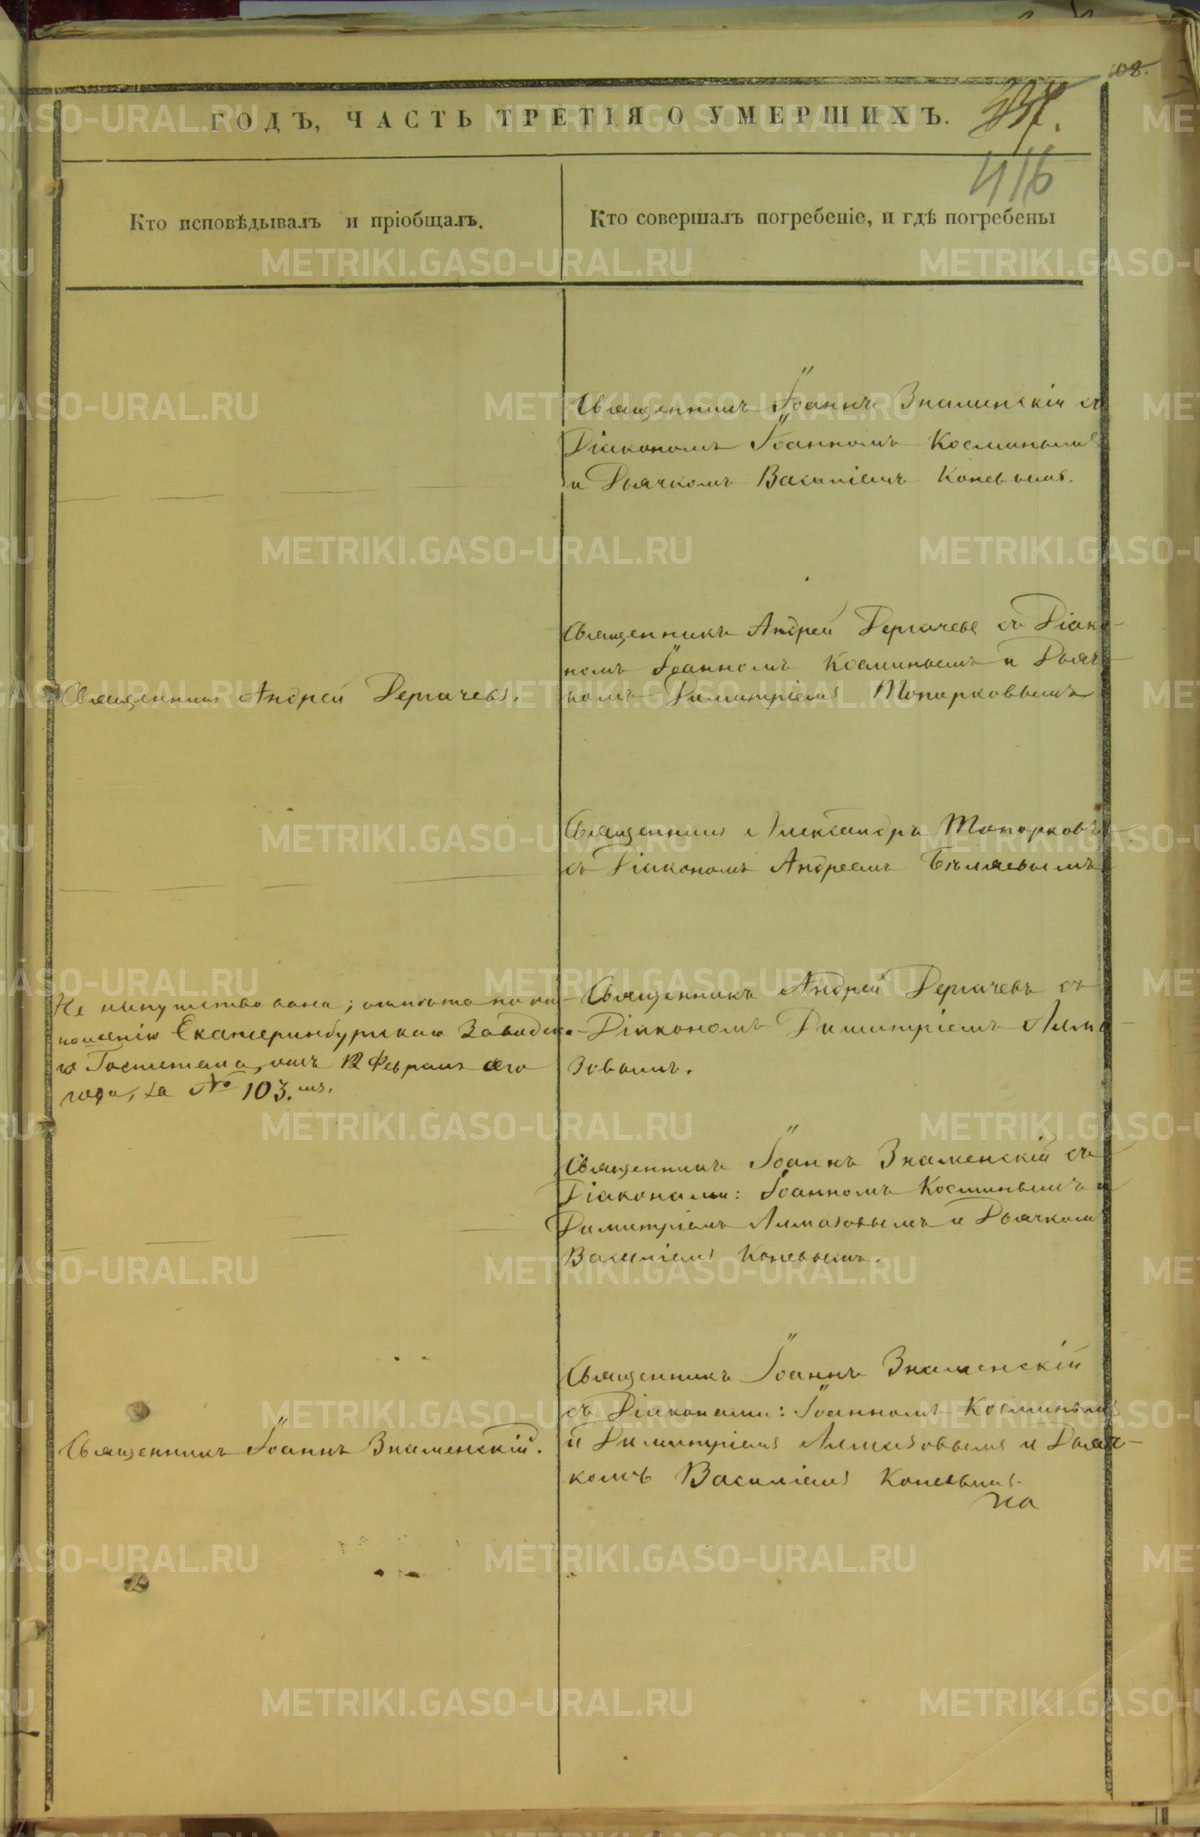 108.
ГОДЪ, ЧАСТЬ ТРЕТІЯ О УМЕРШИХЪ.
416
Кто исповѣдывалъ и пріобщалъ.
Кто совершалъ погребеніе, и гдѣ погребены
Священникъ Іоаннъ Знаменскій съ
Діакономъ Іоанномъ Косминымъ
и Дьячкомъ Василіемъ Коневымъ.
Священникъ Андрей Дергачевъ.
Священникъ Андрей Дергачевъ съ Діако-
номъ Іоанномъ Косминымъ и Дьяч-
комъ Димитріемъ Топорковымъ
Священникъ Александръ Топорковъ
съ Діакономъ Андреемъ Бѣляевымъ
Не напутствована; отпѣта по от-
ношенію Екатеринбургскаго Заводска-
го Госпиталя, отъ 12 Февраля сего
года, за № 103.мъ.
Священникъ Андрей Дергачевъ съ
Діакономъ Димитріемъ Алма-
зовымъ.
Священникъ Іоаннъ Знаменскій съ
Діаконами: Іоанномъ Косминымъ и
Димитріемъ Алмазовымъ и Дьячкомъ
Василіемъ Коневымъ.
Священникъ Іоаннъ Знаменскій.
Священникъ Іоаннъ Знаменскій
съ Діаконами: Іоанномъ Косминымъ
и Димитріемъ Алмазовымъ и Дьяч-
комъ Василіемъ Коневымъ.
на
METRIKI.GASO-URAL.RU